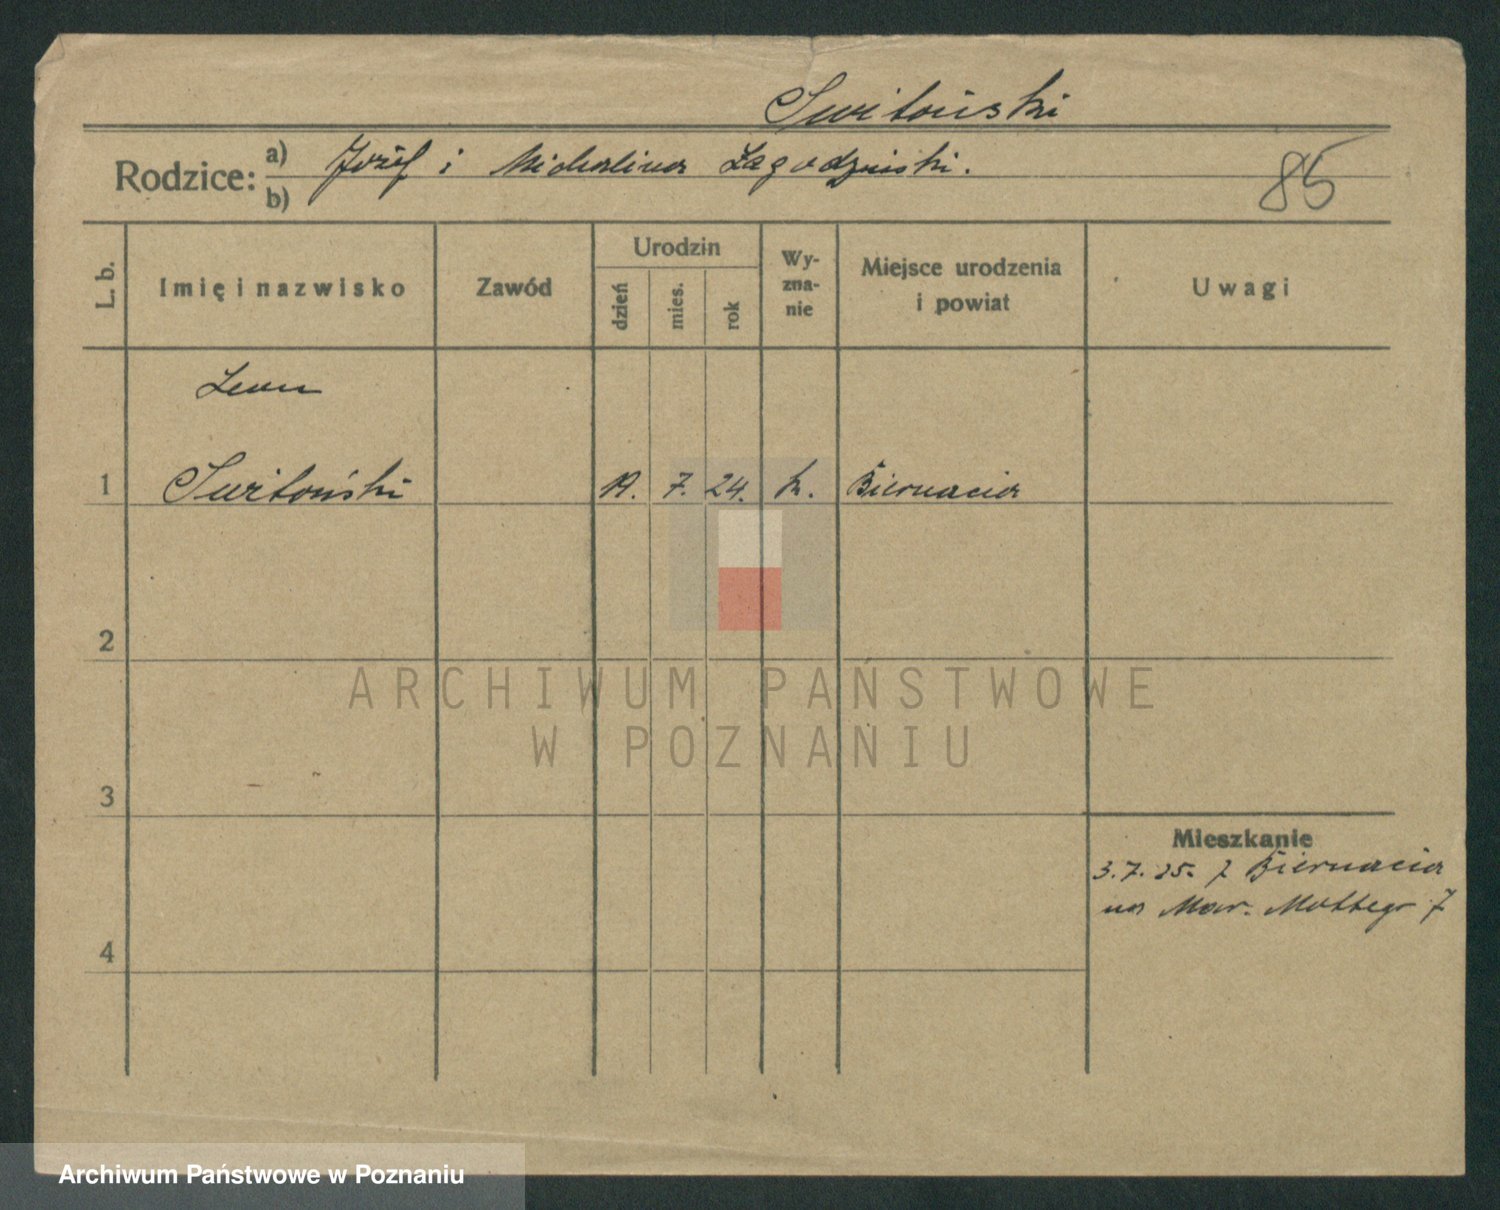 Switoński
Rodzice: a) Józef i Michalina Łagodzinski.
b)
85
L. b. Imię i nazwisko Zawód Urodzin dzień mies. rok Wy-zna-nie Miejsce urodzenia i powiat Uwagi
Leon
1 Switoński 19. 7. 24. k. Biernacia
2
ARCHIWUM PAŃSTWOWE
W POZNANIU
3
Mieszkanie
3.7.25. z Biernacia
na Mar. Mottego 7
4
Archiwum Państwowe w Poznaniu